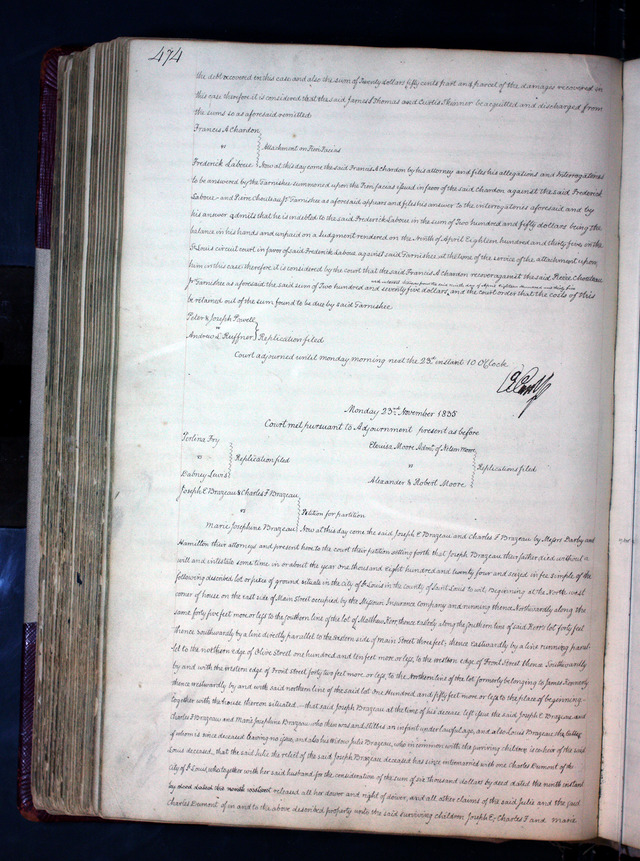 474
the debt recovered in this case and also the sum of Twenty dollars fifty cents part and parcel of the damages recovered in
this case therefore it is considered that the said James S Thomas and Curtis Skinner be acquitted and discharged from
the sums so as aforesaid remitted
Francis A Chardon
vs
Attachment on Fieri Facias
Frederick Laboue
Now at this day come the said Francis A Chardon by his attorney and files his allegations and Interrogatories
to be answered by the Garnishee summoned upon the Fieri facias issued in favor of the said Chardon against the said Frederick
Laboue and Pierre Chouteau Jr Garnishee as aforesaid appears and files his answer to the interrogatories aforesaid and by
his answer admits that he is indebted to the said Frederick Laboue in the sum of Two hundred and fifty dollars being the
balance in his hands and unpaid on a Judgment rendered on the Ninth of April Eighteen hundred and thirty five in the
St Louis circuit court in favor of said Frederick Laboue against said Garnishee at the time of the service of the attachment upon
him in this case therefore it is considered by the court that the said Francis A Chardon recover against the said Pierre Chouteau
Jr Garnishee as aforesaid the said sum of Two hundred and seventy five dollars and the court order that the costs of this
be retained out of the sum found to be due by said Garnishee
Peter & Joseph Powell
vs
Replication filed
Andrew L Ruffner
Court adjourned until monday morning next the 23d instant 10 O'Clock
Monday 23rd November 1835
Court met pursuant to Adjournment present as before
Perlina Fry
vs
Replication filed
Dabney Lewis
Elouisa Moore Admt. of Nelson Moore
vs
Replications filed
Alexander & Robert Moore
Joseph E Brazeau & Charles F Brazeau
vs
Petition for partition
Marie Josephine Brazeau
Now at this day come the said Joseph E Brazeau and Charles F Brazeau by Messrs Darby and
Hamilton their attorneys and present here to the court their petition setting forth that Joseph Brazeau their father died without a
will and intestate some time in or about the year one thousand and eight hundred and twenty four and seized in fee simple of the
following described lot or peices of ground situate in the city of St Louis in the county of Saint Louis to wit; beginning at the North west
corner of house on the east side of Main Street occupied by the Missouri Insurance Company and running thence Northwardly along the
same forty five feet more or less to the southern line of the lot of Matthew Kerr, thence easterly along the southern line of said Kerr's lot forty feet
thence Southwardly by a line directly parallel to the western side of main Street three feet; thence eastwardly by a line running paral-
lel to the northern edge of Olive Street one hundred and ten feet more or less, to the western edge of Front Street thence Southwardly
by and with the western edge of Front street forty two feet more or less, to the Northern line of the lot formerly belonging to James Kennerly
thence westwardly by and with said northern line of the said lot One Hundred and fifty feet more or less to the place of beginning
together with the house thereon situated—that said Joseph Brazeau at the time of his decease left issue the said Joseph E Brazeau and
Charles F Brazeau and Marie Josephine Brazeau who then was and still is an infant under lawful age, and also Louis Brazeau the latter
of whom is since deceased leaving no issue, and also his widow Julie Brazeau, who in common with the surviving children is coheir of the said
Louis deceased, that the said Julie the relict of the said Joseph Brazeau deceased has since intermarried with one Charles Dumont of the
City of St Louis, who together with her said husband, for the consideration of the sum of six thousand dollars by deed dated the ninth instant
released all her dower and right of dower, and all other claims of the said Julie and the said
Charles Dumont of in and to the above described property unto the said surviving children Joseph E; Charles F and Marie